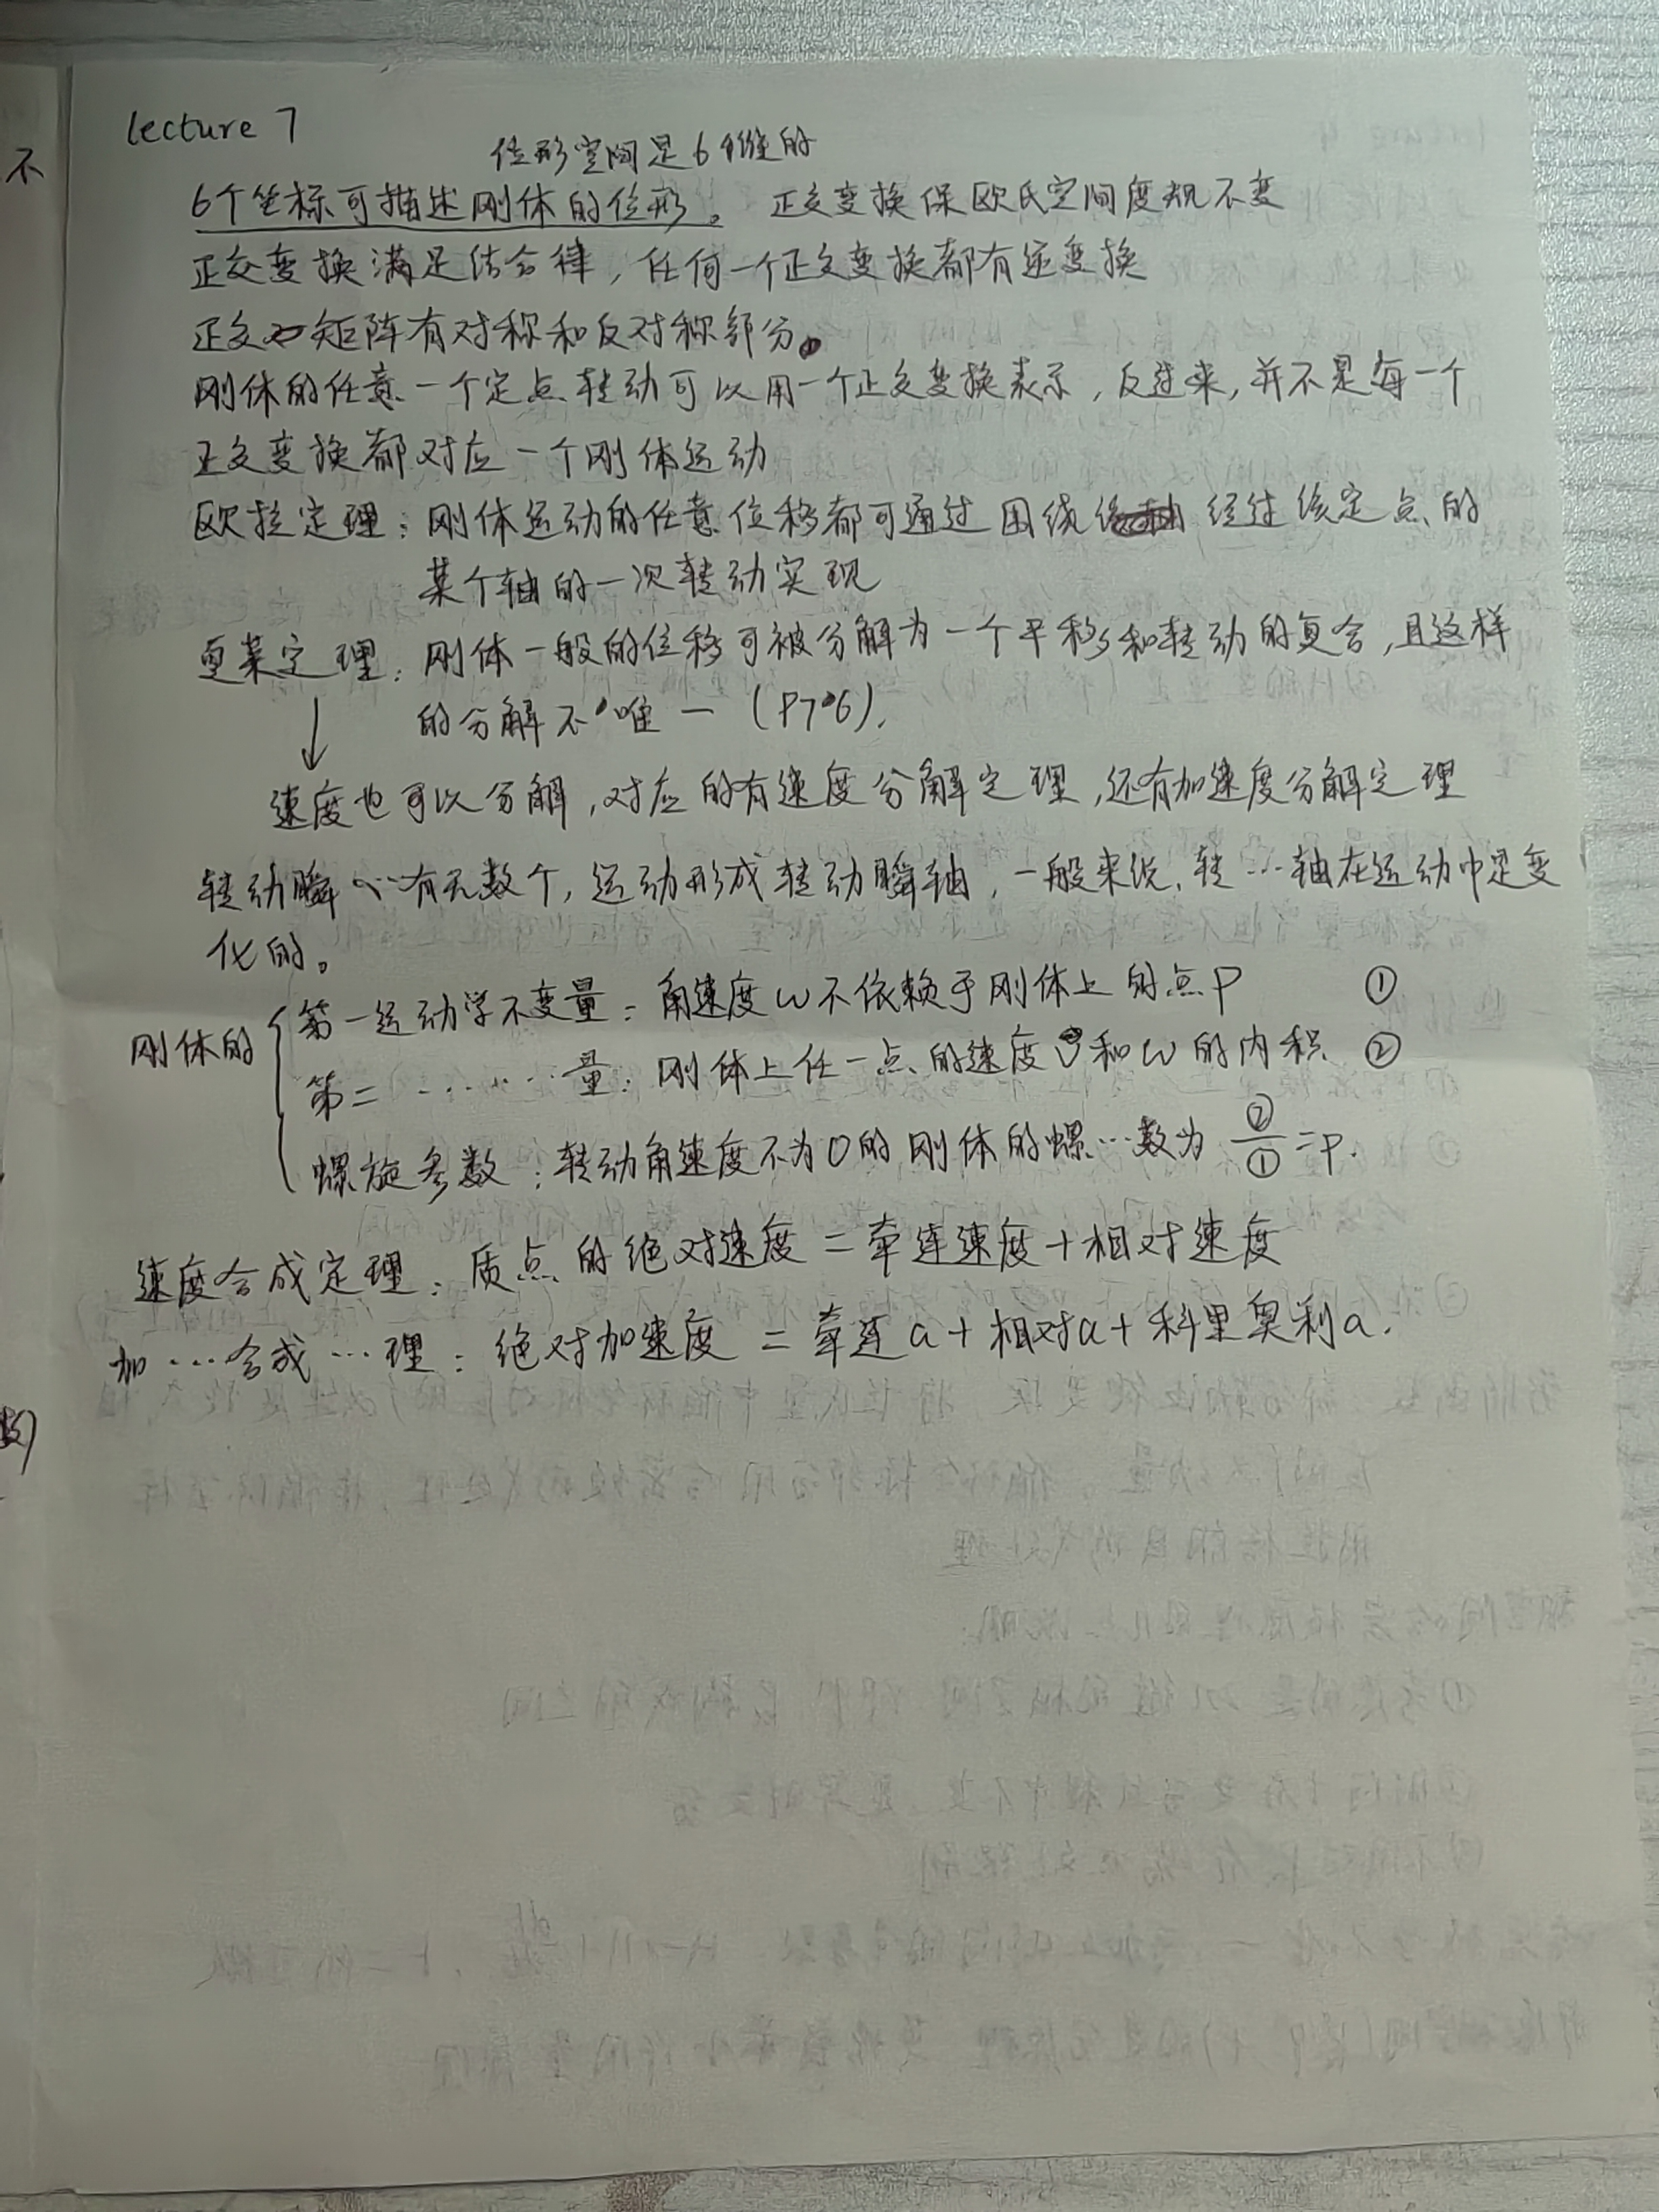 lecture 7
位形空间是6维的
6个坐标可描述刚体的位形。 正交变换保欧氏空间度规不变
正交变换满足结合律，任何一个正交变换都有逆变换
正交矩阵有对称和反对称部分。
刚体的任意一个定点转动可以用一个正交变换表示，反过来，并不是每一个
正交变换都对应一个刚体运动
欧拉定理：刚体运动的任意位移都可通过围绕经过该定点的
某个轴的一次转动实现
夏莱定理：刚体一般的位移可被分解为一个平移和转动的复合，且这样
的分解不唯一 (P76).
↓
速度也可以分解，对应的有速度分解定理，还有加速度分解定理
转动瞬心…有无数个，运动形成转动瞬轴，一般来说，转…轴在运动中是变
化的。
刚体的
第一运动学不变量：角速度ω不依赖于刚体上的点P ①
第二……量：刚体上任一点的速度v和ω的内积 ②
螺旋参数：转动角速度不为0的刚体的螺…数为 ②/① =p.
速度合成定理：质点的绝对速度 = 牵连速度+相对速度
加…合成…理：绝对加速度 = 牵连a+相对a+科里奥利a.
不